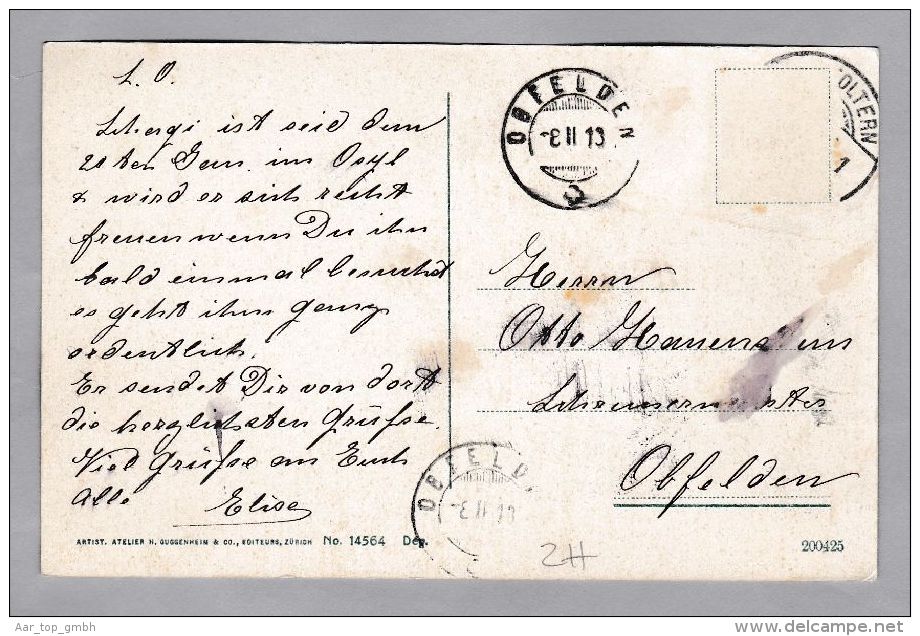 L. O.
ist seid dem
20ten Jan. im Asyl
& wird er sich recht
freuen wenn Du ihn
bald einmal besuchst
es geht ihm ganz
ordentlich.
Er sendet Dir von dort
die herzlichsten Grüsse.
Viel Grüsse an Euch
Alle Elise
ARTIST. ATELIER H. GUGGENHEIM & CO., EDITEURS, ZÜRICH No. 14564 Dép.
OBFELDEN
-8 II 13
OLTERN
1
Herrn
Otto
Schreinermeister
Obfelden
OBFELD
-8 II 13
2H
200425
Aar_top_gmbh
delcampe.net